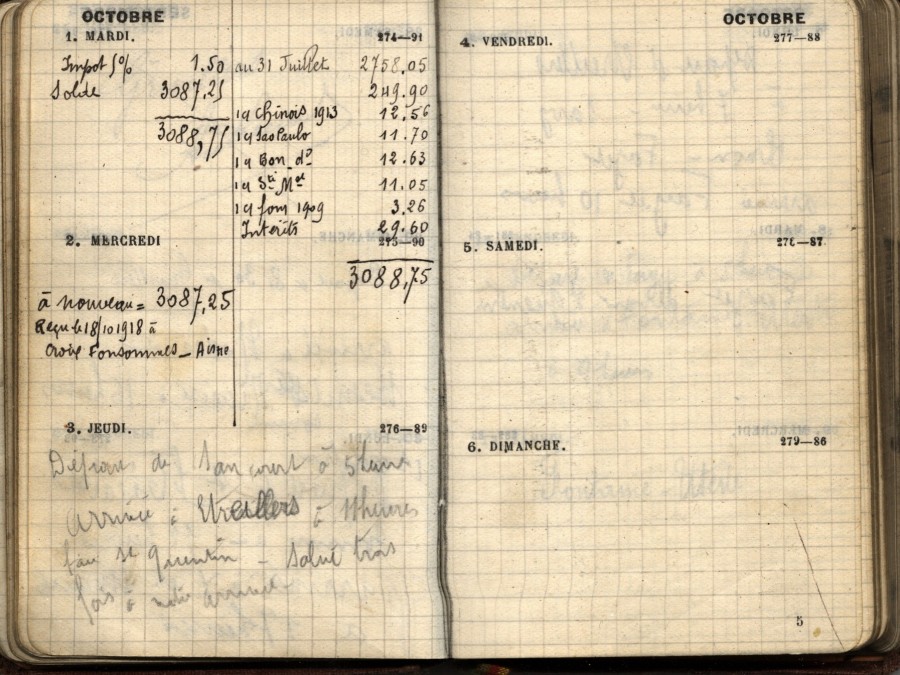 OCTOBRE
1. MARDI. 274—91
Impot 5% 1.50
Solde 3087,25
3088,75
au 31 Juillet 2758.05
249.90
1q Chinois 1913 12.56
1q Sao Paulo 11.70
1q Bon do 12.63
1q 11.05
1q fonc 1909 3.26
Intérêts 29.60
2. MERCREDI 275—90
3088,75
à nouveau = 3087,25
Reçu le 18/10 1918 à
Croix Fonsommes - Aisne
3. JEUDI. 276—89
Départ de à 5 heures
arrivée à Etreillers à 11 heures
St Quentin - Salué trois
fois à notre arrivée
OCTOBRE
4. VENDREDI. 277—88
5. SAMEDI. 278—87
6. DIMANCHE. 279—86
5